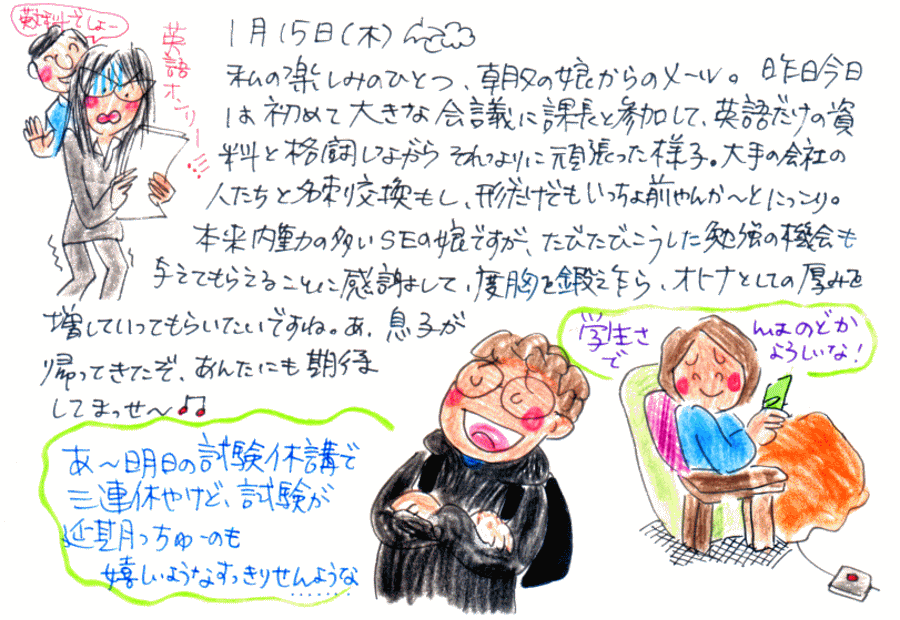 1月15日(木)
私の楽しみのひとつ、朝夕の娘からのメール。昨日今日
は初めて大きな会議に課長と参加して、英語だけの資
料と格闘しながらそれなりに頑張った様子。大手の会社の
人たちと名刺交換もし、形だけでもいっちょ前やんか〜とにっこり。
本来内勤の多いSEの娘ですが、たびたびこうした勉強の機会も
与えてもらえることに感謝して、度胸を鍛えたら、オトナとしての厚みを
増していってもらいたいですね。あ、息子が
帰ってきたぞ、あんたにも期待
してまっせ〜♫
でしょー
英語オンリー…
あ〜明日の試験休講で
三連休やけど、試験が
延期っちゅーのも
嬉しいようなすっきりせんような
学生さんはのどか
でよろしいな!